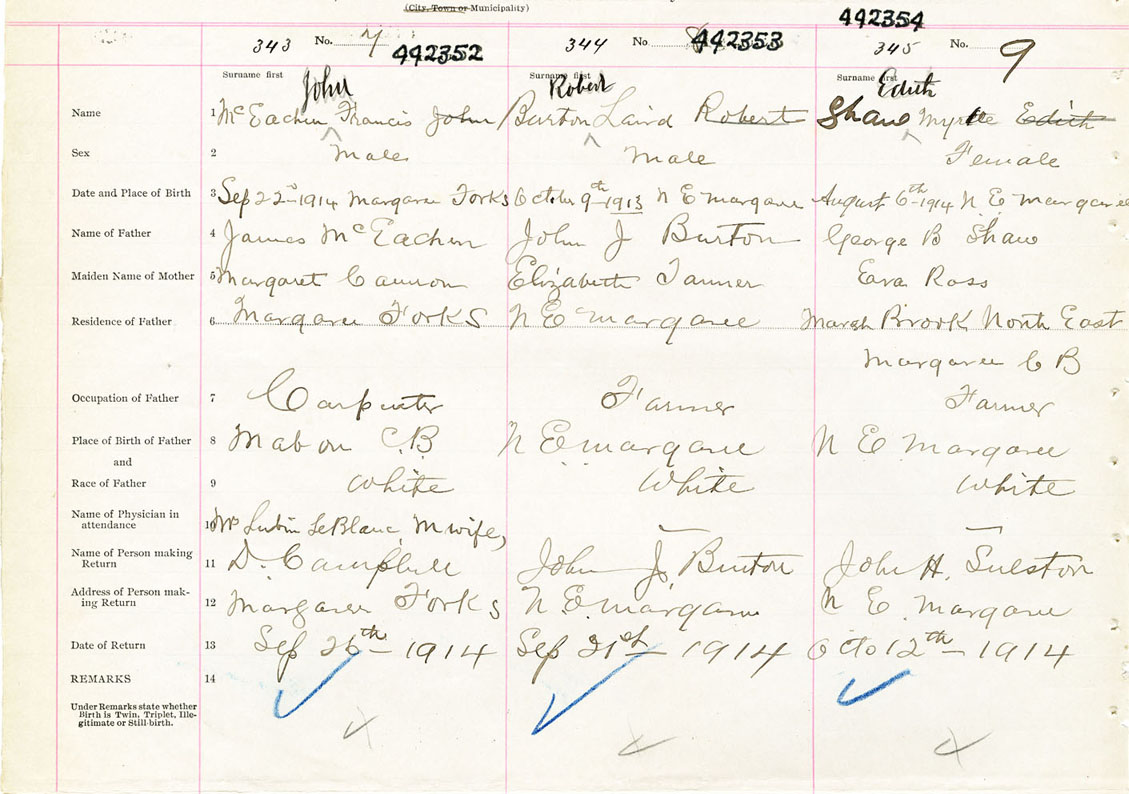 (City, Town or Municipality)
343 No. 7 442352 344 No 8 442353 345 No. 9 442354
Surname first John Surname first Robert Surname first Edith
Name 1 McEachen Francis John Burton Laird Robert Shaw Myrtle Edith
Sex 2 Male Male Female
Date and Place of Birth 3 Sep 22nd 1914 Margaree Forks October 9th 1913 N E Margaree August 6th 1914 N. E. Margaree
Name of Father 4 James McEachen John J Burton George B Shaw
Maiden Name of Mother 5 Margaret Cannon Elizabeth Tanner Eva Ross
Residence of Father 6 Margaree Forks N E Margaree Marsh Brook North East
Margaree C B
Occupation of Father 7 Carpenter Farmer Farmer
Place of Birth of Father 8 Mabou C.B. N E Margaree N E Margaree
and
Race of Father 9 White White White
Name of Physician in
attendance 10 Mrs Lubin LeBlanc, Mwife, — —
Name of Person making
Return 11 D. Campbell John J. Burton John H.
Address of Person mak-
ing Return 12 Margaree Forks N. E. Margaree N E. Margaree
Date of Return 13 Sep 26th – 1914 Sep 21st – 1914 Octo 12th – 1914
REMARKS 14
Under Remarks state whether
Birth is Twin, Triplet, Ille-
gitimate or Still-birth.